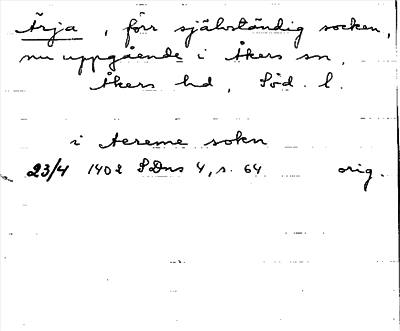 Ärja, förr självständig socken,
nu uppgående i Åkers sn,
Åkers hd, Söd. l.
i Aereme sokn
23/4 1402 SDns 4, s. 64 orig.